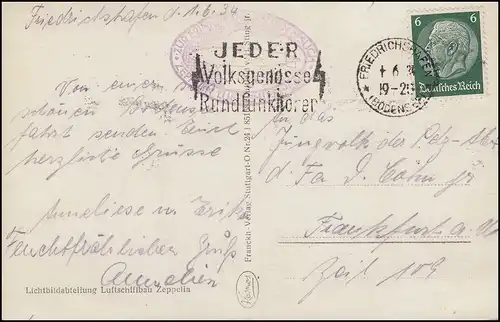 Friedrichshafen d. 1.6.34
JEDER
Volksgenosse
Rundfunkhörer
FRIEDRICHSHAFEN
1 6 34
19-20
(BODENSEE)
6 6
Deutsches Reich
Von einer so
schönen
fahrt senden Euch
herzliche Grüsse
Anneliese u.
Feuchtfröhlichen Gruß
An das
Jungvolk der Pelz-
d. Fa D. Cohn jr
Frankfurt a. M
Zeil 109
Franckh-Verlag Stuttgart-O Nr. 24
Lichtbildabteilung Luftschiffbau Zeppelin